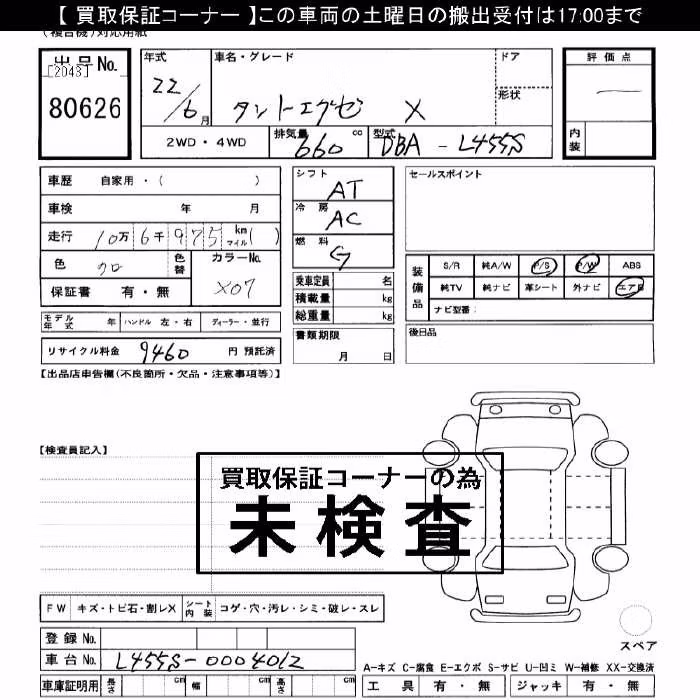 【 買取保証コーナー 】この車両の土曜日の搬出受付は17:00まで
(複合機)対応用紙
出品No.
[2043]
80626
年式
22/6月
車名・グレード
タントエグゼ X
ドア
形状
評価点
内装
2WD・4WD
排気量 660 cc
型式 DBA - L455S
車歴 自家用・( )
車検 年 月
走行 10万 6千 9 7 5 km マイル( )
色 クロ
色替
カラーNo. X07
保証書 有・無
モデル年式 年 ハンドル 左・右 ディーラー・並行
リサイクル料金 9460 円 預託済
シフト AT
冷房 AC
燃料 G
乗車定員 名
積載量 kg
総重量 kg
書類期限
月 日
セールスポイント
装備品
S/R 純A/W P/S P/W ABS
純TV 純ナビ 革シート 外ナビ エアB
ナビ型番:
後日品
【出品店車告欄(不良箇所・欠品・注意事項等)】
【検査員記入】
買取保証コーナーの為
未検査
FW キズ・トビ石・割レX シート内装 コゲ・穴・汚レ・シミ・破レ・スレ
登録No.
車台No. L455S-0004012
車庫証明用 長さ cm 幅 cm 高さ cm
スペア
A-キズ C-腐食 E-エクボ S-サビ U-凹ミ W-補修 XX-交換済
工具 有・無 ジャッキ 有・無